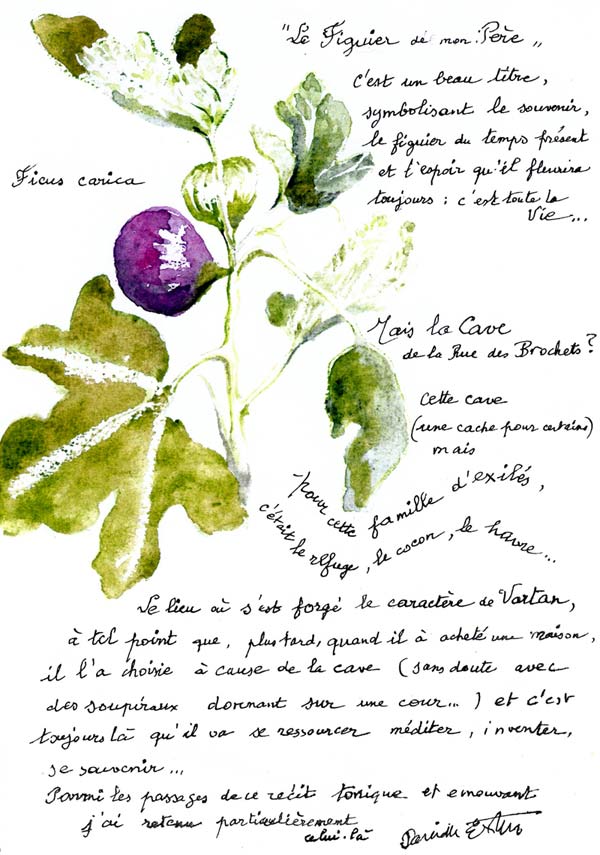 "Le Figuier de mon Père„
c'est un beau titre,
symbolisant le souvenir,
le figuier du temps présent
et l'espoir qu'il fleurira
toujours : c'est toute la
Vie...
Ficus carica
Mais la Cave
de la Rue des Brochets ?
cette cave
(une cache pour certains)
mais
pour cette famille d'exilés,
c'était le refuge, le cocon, le havre...
Le lieu où s'est forgé le caractère de Vartan,
à tel point que, plus tard, quand il à acheté une maison,
il l'a choisie à cause de la cave (sans doute avec
des soupiraux donnant sur une cour...) et c'est
toujours là qu'il va se ressourcer méditer, inventer,
se souvenir...
Parmi les passages de ce récit tonique et emouvant
j'ai retenu particulièrement
celui-là